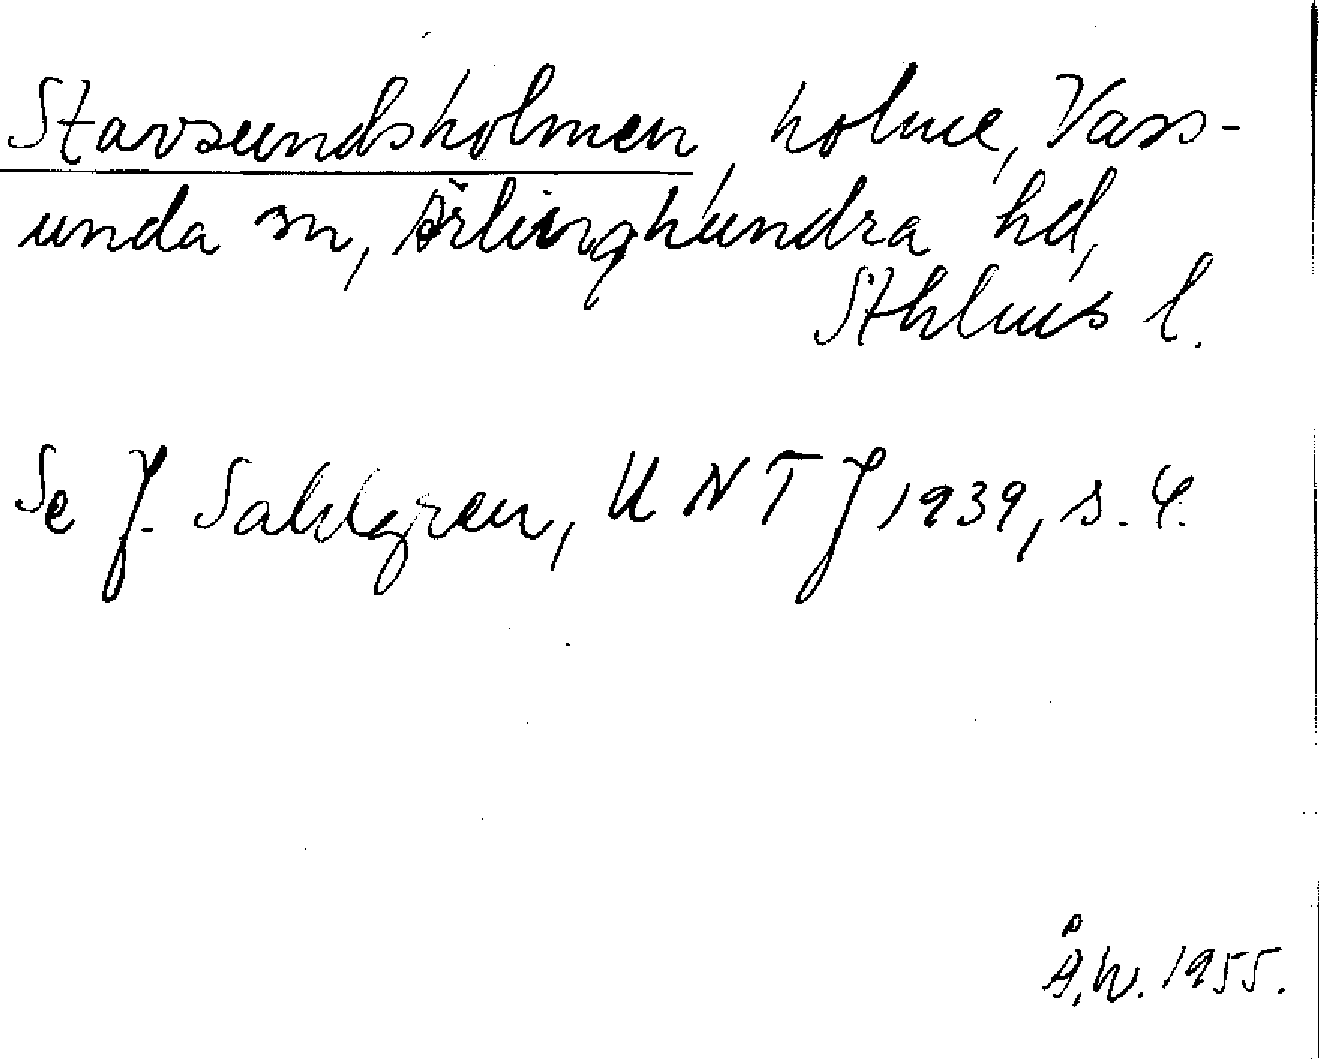 Stavsundsholmen, holme, Vass-
unda sn, Ärlinghundra hd,
Sthlms l.
Se J. Sahlgren, UNTJ 1939, s. 4.
Å.W. 1955.